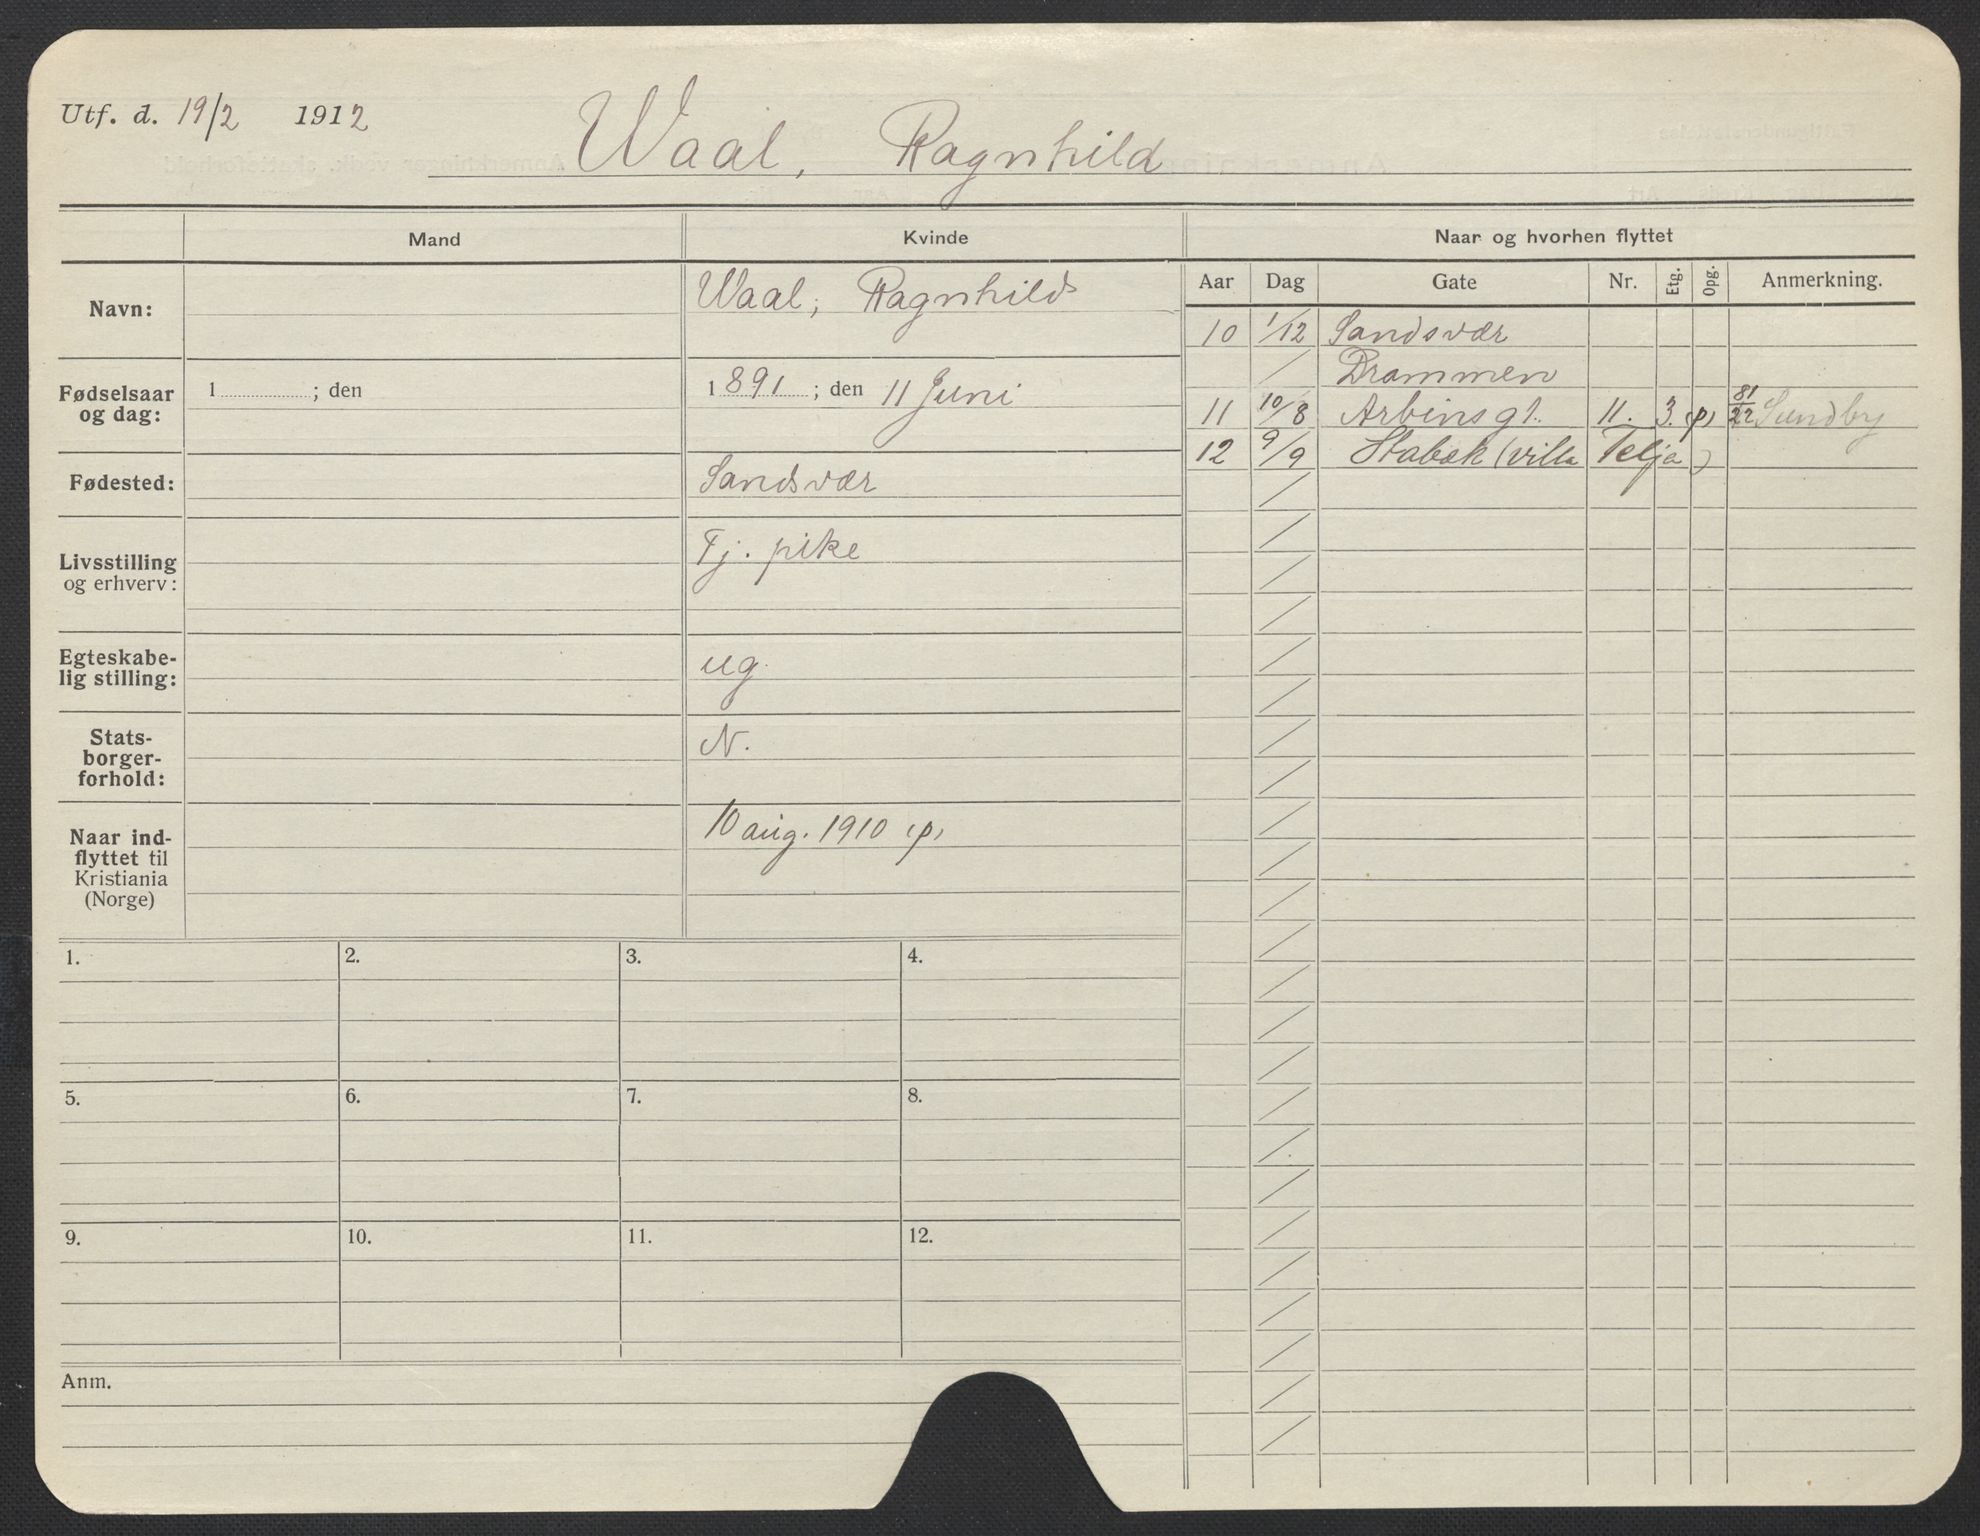 Utf. d. 19/2 1912
Waal, Ragnhild
Mand
Kvinde
Naar og hvorhen flyttet
Navn:
Waal, Ragnhild
Fødselsaar
og dag:
1 ; den
1891 ; den 11 Juni
Fødested:
Sandsvær
Livsstilling
og erhverv:
Tj. pike
Egteskabe-
lig stilling:
ug.
Stats-
borger-
forhold:
N.
Naar ind-
flyttet til
Kristiania
(Norge)
10 aug. 1910 (p)
Aar Dag Gate Nr. Etg. Opg. Anmerkning.
10 1/12 Sandsvær
/ Drammen
11 10/8 Arbins gt. 11. 3. (p) 81/22 Sundby
12 9/9 Stabæk (villa Telja)
1. 2. 3. 4.
5. 6. 7. 8.
9. 10. 11. 12.
Anm.